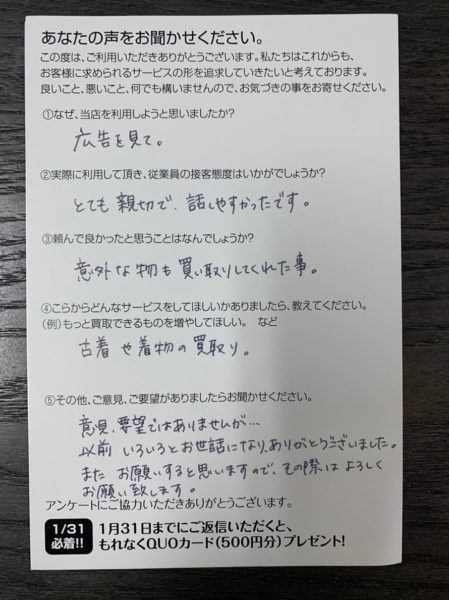 あなたの声をお聞かせください。
この度は、ご利用いただきありがとうございます。私たちはこれからも、
お客様に求められるサービスの形を追求していきたいと考えております。
良いこと、悪いこと、何でも構いませんので、お気づきの事をお寄せください。
①なぜ、当店を利用しようと思いましたか?
広告を見て。
②実際に利用して頂き、従業員の接客態度はいかがでしょうか?
とても親切で、話しやすかったです。
③頼んで良かったと思うことはなんでしょうか?
意外な物も買い取りしてくれた事。
④こらからどんなサービスをしてほしいかありましたら、教えてください。
(例)もっと買取できるものを増やしてほしい。 など
古着や着物の買取り。
⑤その他、ご意見、ご要望がありましたらお聞かせください。
意見、要望ではありませんが…
以前いろいろとお世話になり、ありがとうございました。
またお願いすると思いますので、その際はよろしく
お願い致します。
アンケートにご協力いただきありがとうございます。
1/31
必着!!
1月31日までにご返信いただくと、
もれなくQUOカード(500円分)プレゼント!